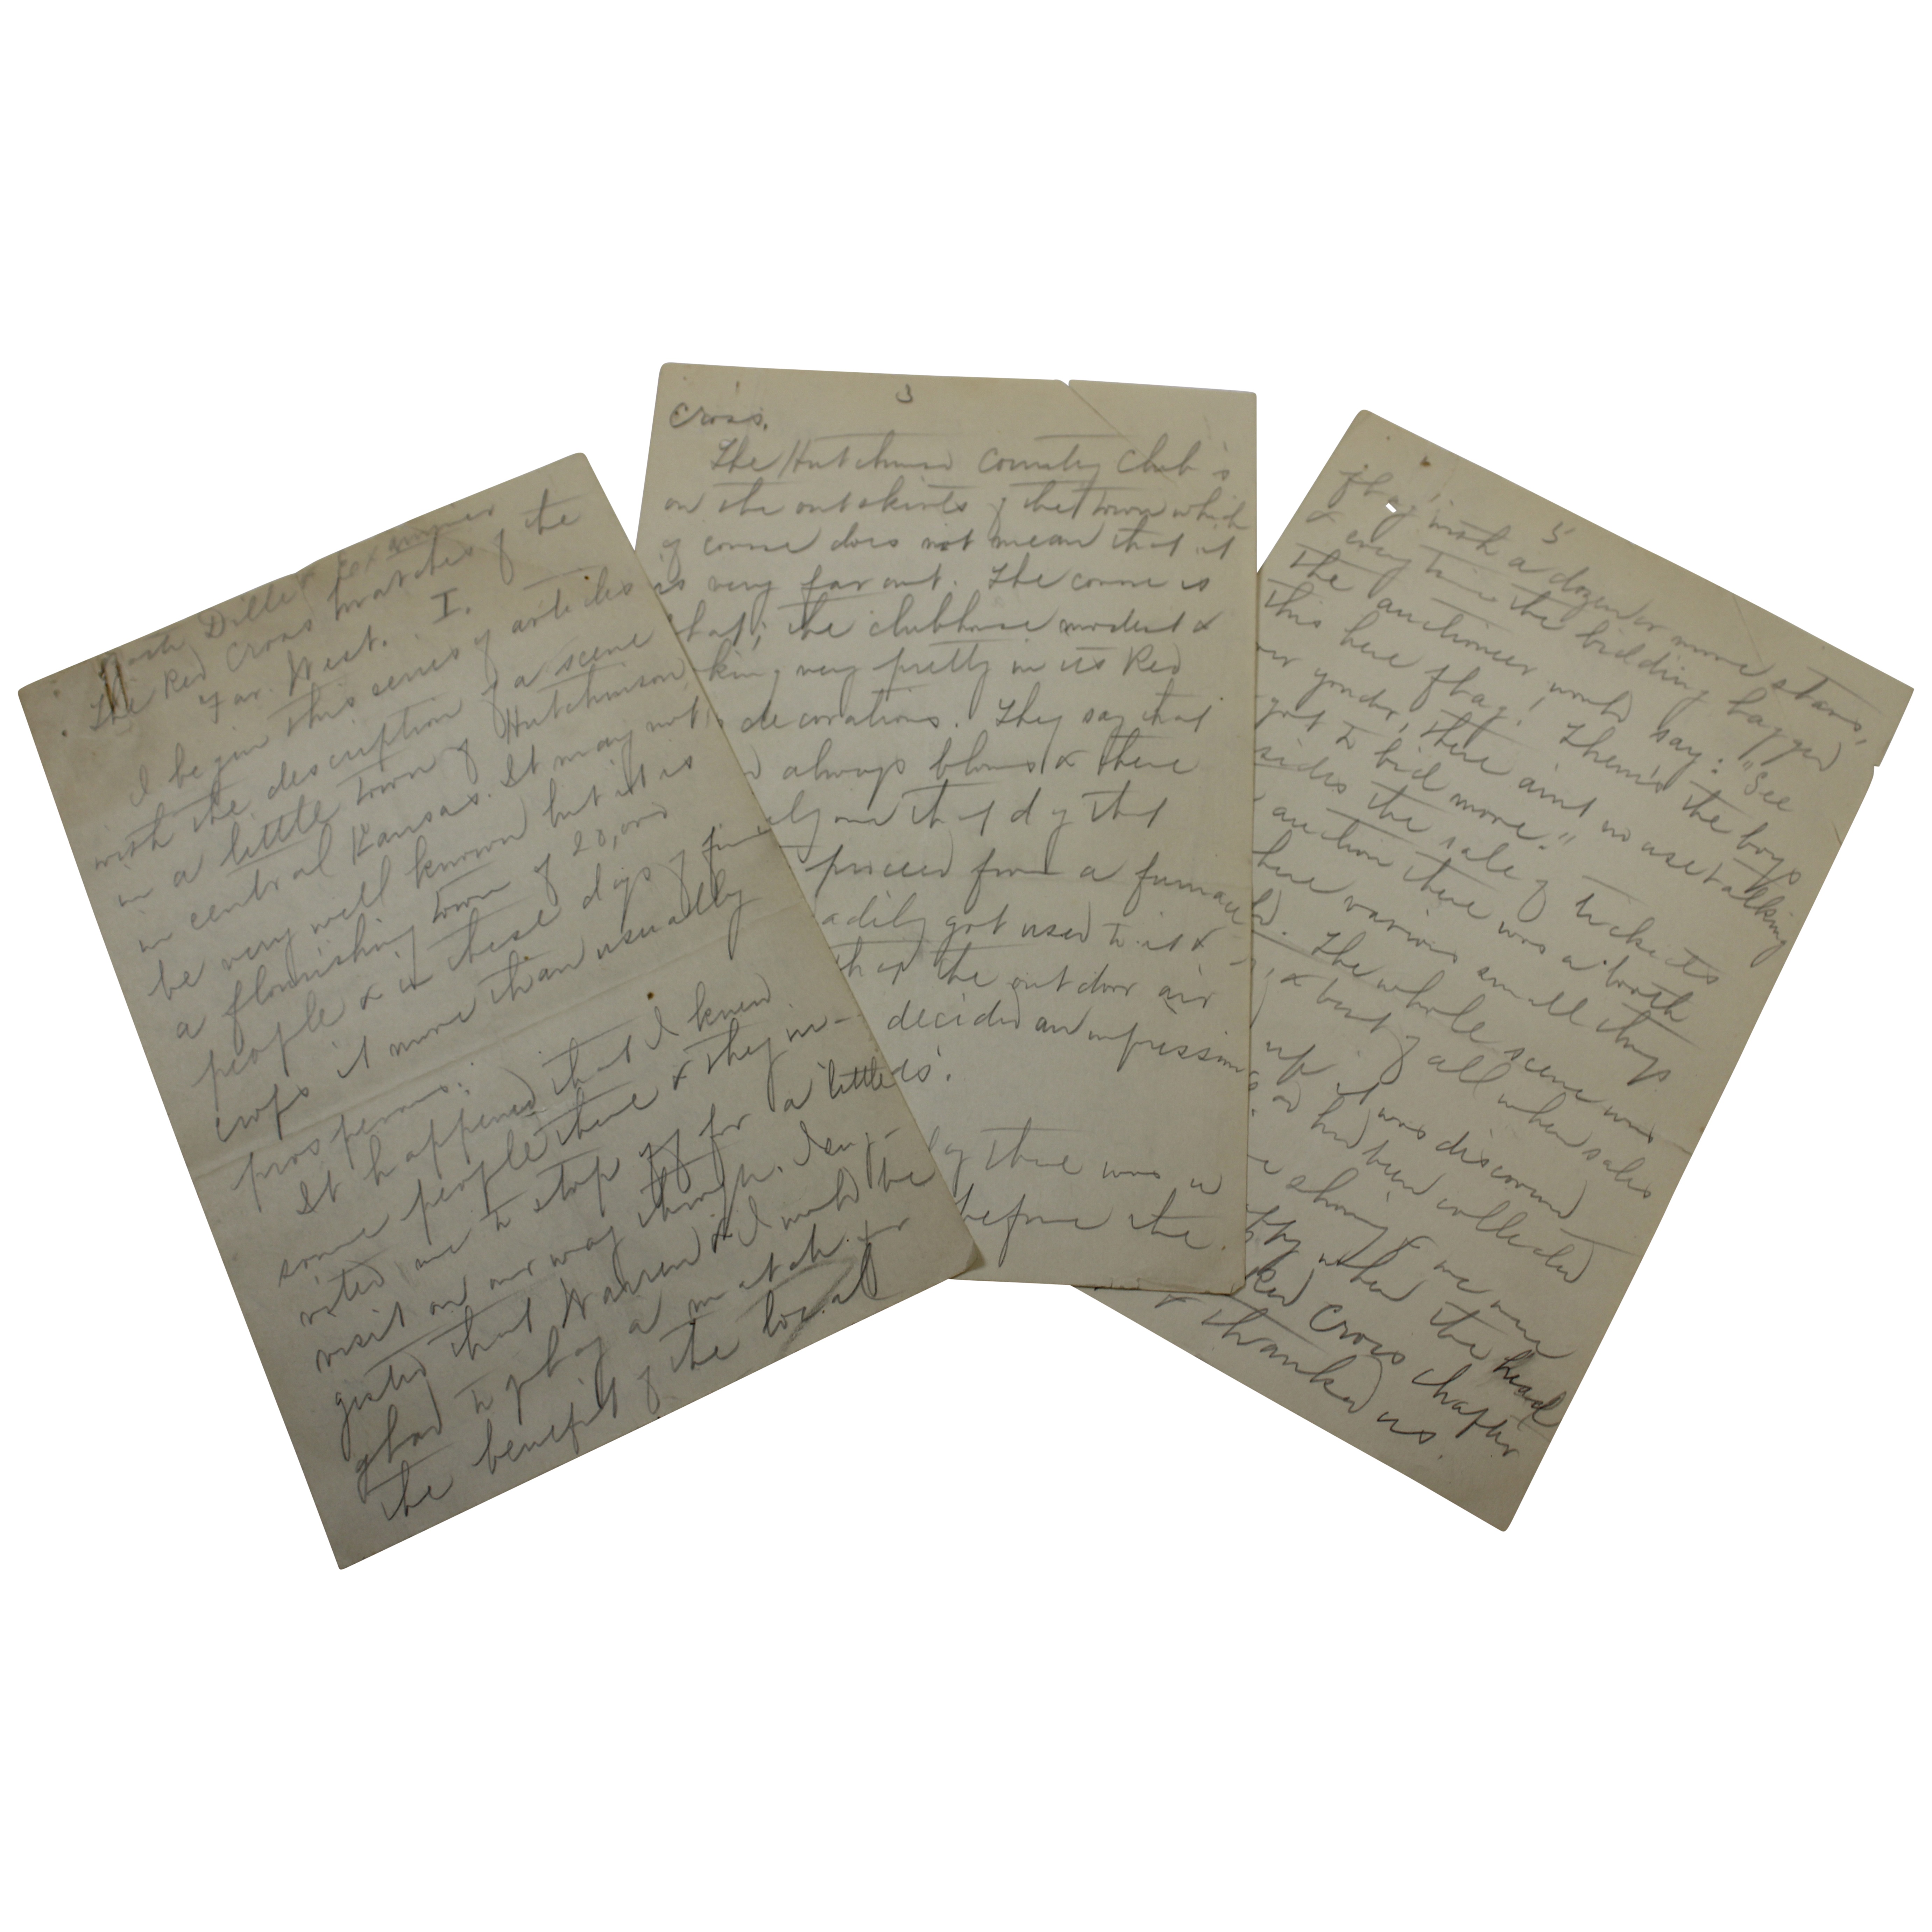 The Red Cross matches of the
Far West. I.
I begin this series of articles
with the description of a scene
in a little town of Hutchinson
in central Kansas. It may not
be very well known but it is
a flourishing town of 20,000
people & in these days of
crops it more than usually
prosperous.
It happened that I knew
some people there & they in-
vited me to stop off for a little
visit on our way through. I sug-
gested that Warren & I would be
glad to play a match for
the benefit of the local
3
Cross.
The Hutchinson Country Club is
on the outskirts of the town which
of course does not mean that it
is very far out. The course is
flat; the clubhouse modest &
very pretty in its Red
decorations. They say that
always blows & there
on that day that
proceed from a furnace
got used to it &
the outdoor air
decided an impression
there was a
before the
5
flag with a dozen or more stars,
& every time the bidding lagged
the auctioneer would say: "See
this here flag! Them's the boys
over yonder, there aint no use talking
got to bid more."
sides the sale of tickets
auction there was a booth
where various small things
The whole scene was
& best of all when sales
up it was discovered
had been collected
we were
when the head
Red Cross chapter
& thanked us.